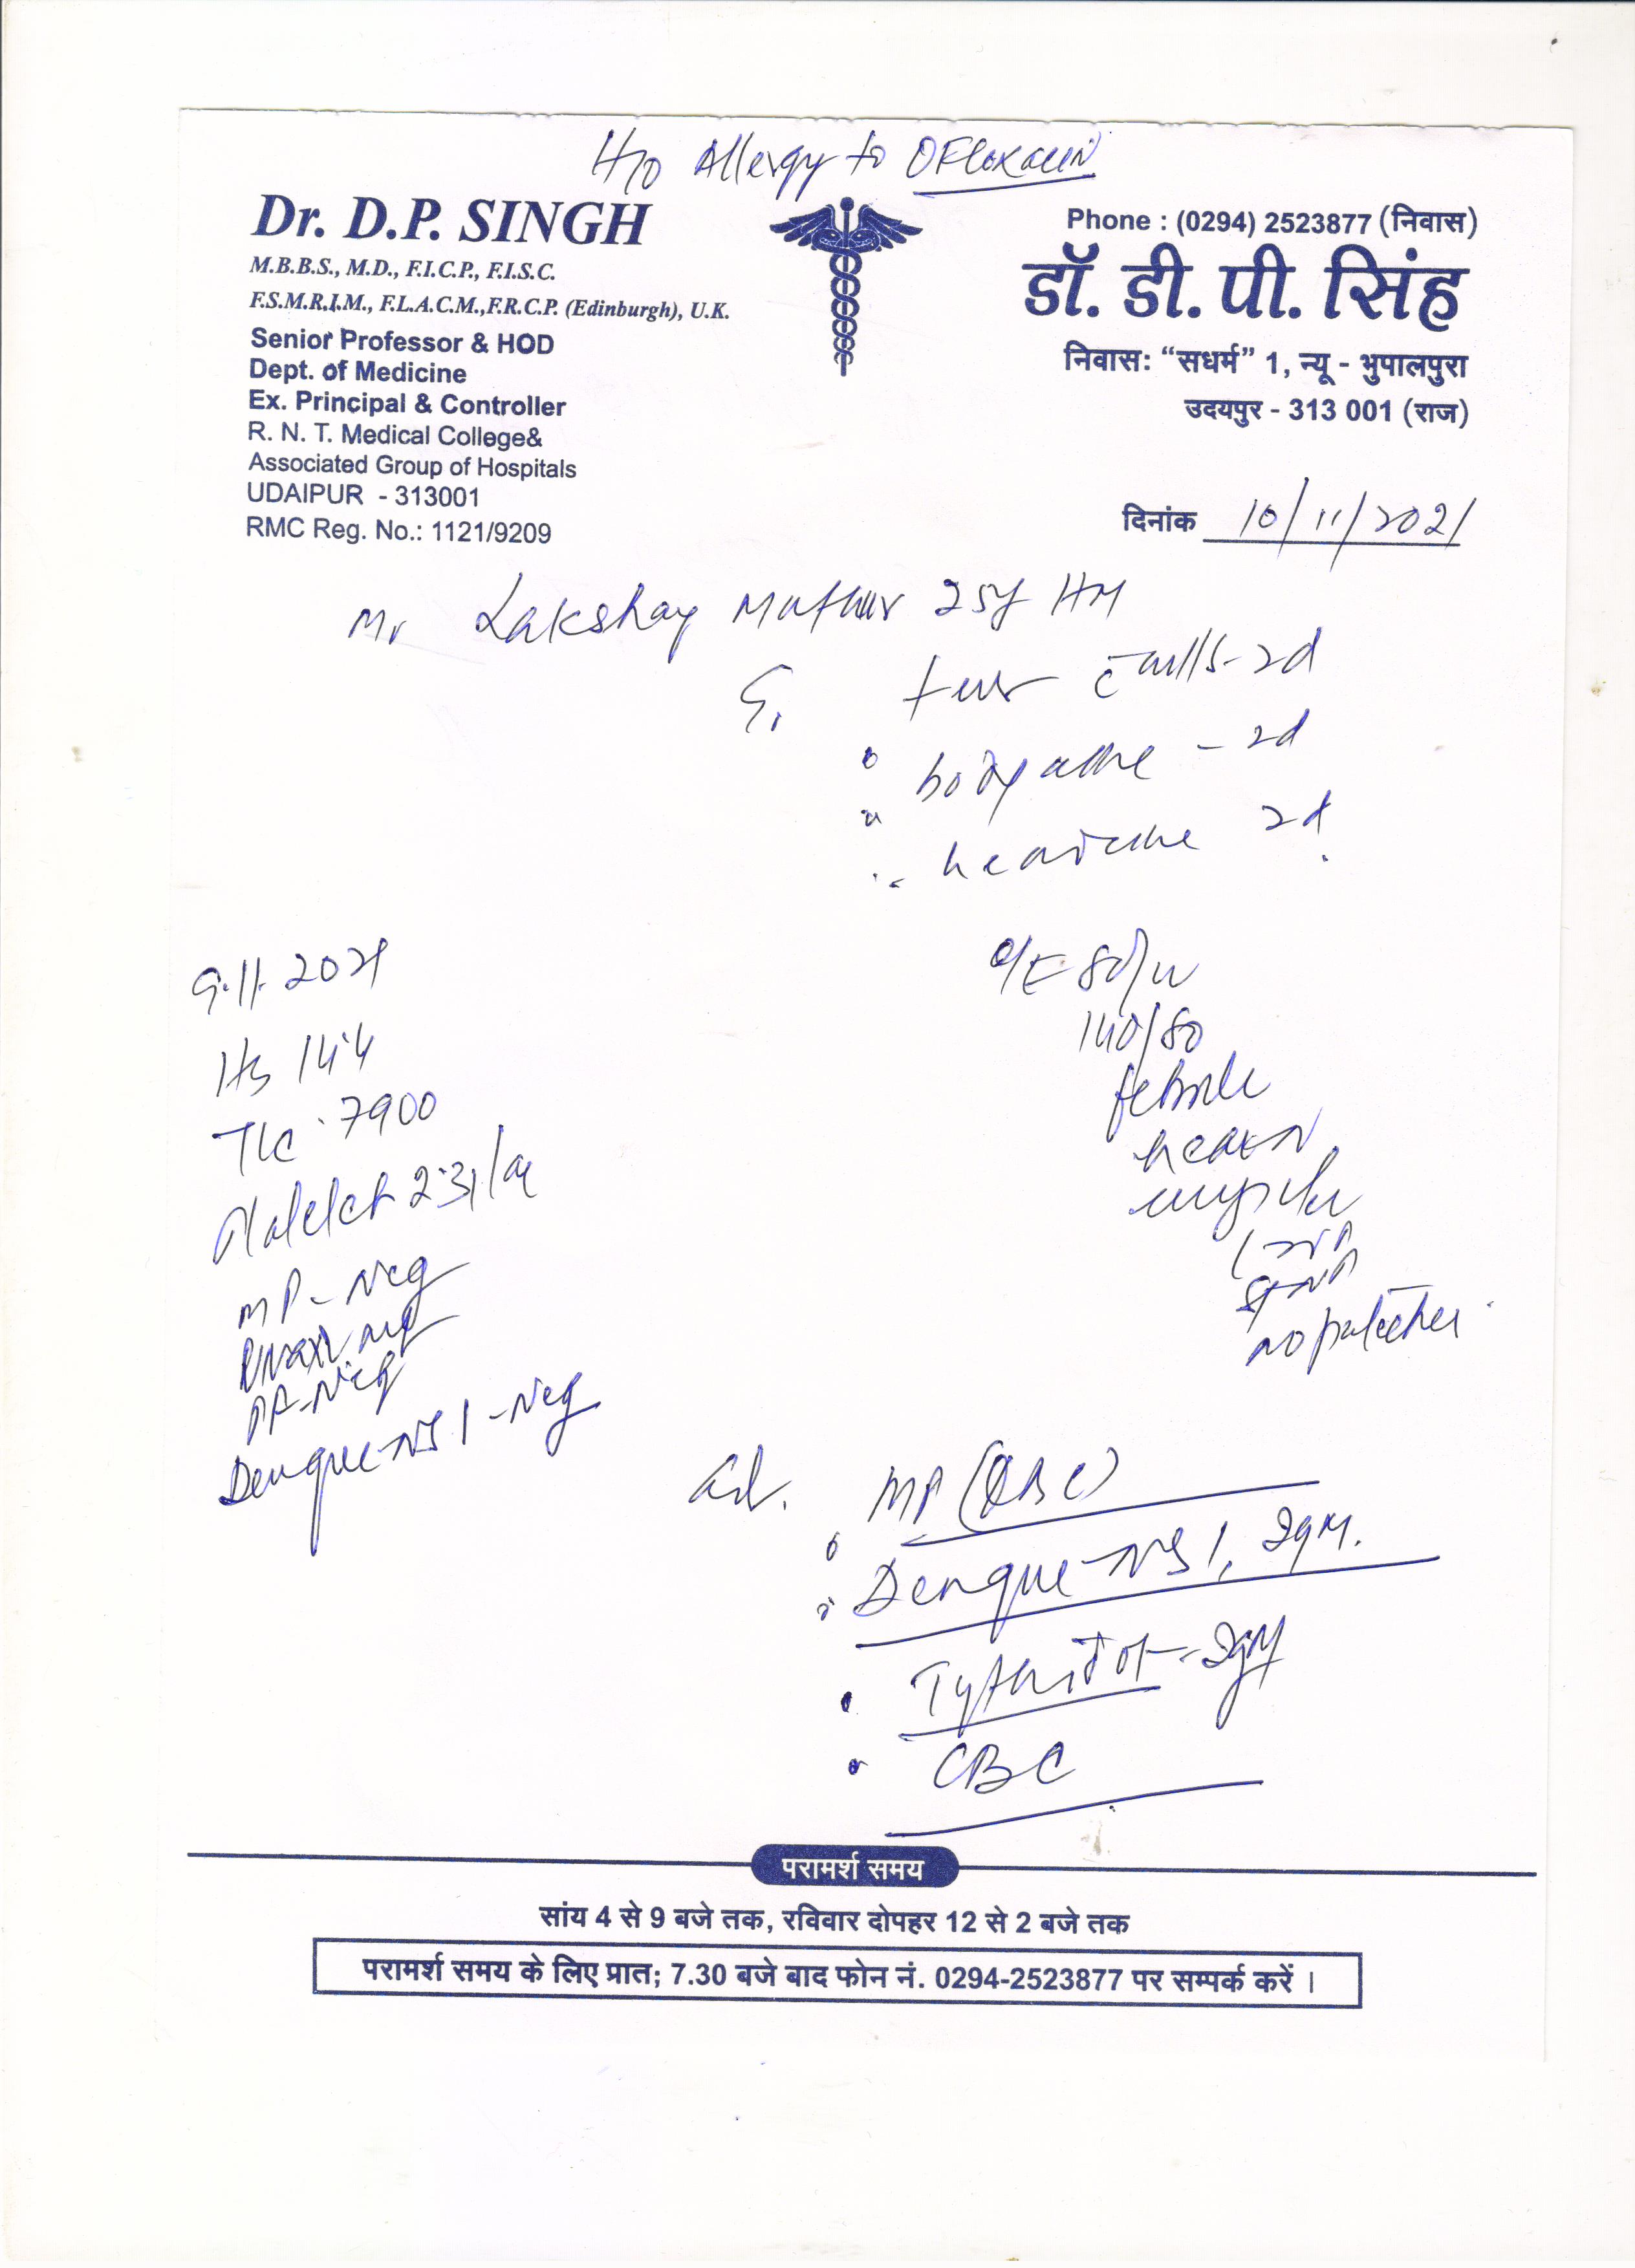 H/o Allergy to OFloxacin
Dr. D.P. SINGH
M.B.B.S., M.D., F.I.C.P., F.I.S.C.
F.S.M.R.I.M., F.I.A.C.M.,F.R.C.P. (Edinburgh), U.K.
Senior Professor & HOD
Dept. of Medicine
Ex. Principal & Controller
R. N. T. Medical College&
Associated Group of Hospitals
UDAIPUR - 313001
RMC Reg. No.: 1121/9209
Phone : (0294) 2523877 (निवास)
डॉ. डी. पी. सिंह
निवास: “सधर्म” 1, न्यू - भुपालपुरा
उदयपुर - 313 001 (राज)
दिनांक 10/11/2021
Mr Lakshay Mathur 25y
fever c̄ chills - 2d
bodyache - 2d
headache 2d
9.11.2021
Hb 14.4
TLC 7900
Platelet 2.31
MP - Neg
P.Vivax neg
PF - Neg
Dengue NS1 - Neg
O/E 80
140/80
febrile
no
Ad.
MP (QBC)
Dengue NS1, IgM.
Typhidot - IgM
CBC
परामर्श समय
सांय 4 से 9 बजे तक, रविवार दोपहर 12 से 2 बजे तक
परामर्श समय के लिए प्रात; 7.30 बजे बाद फोन नं. 0294-2523877 पर सम्पर्क करें ।